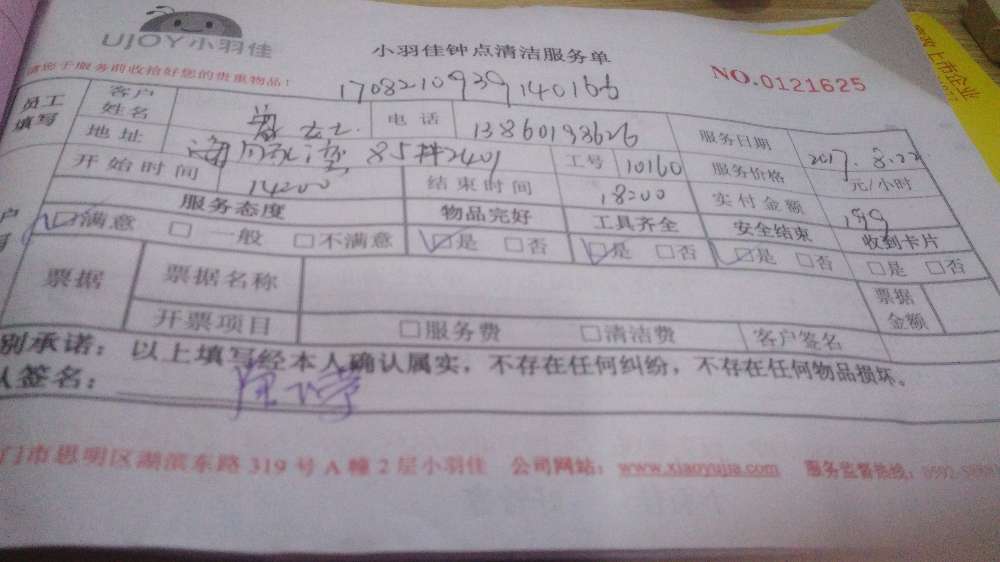 UJOY小羽佳
小羽佳钟点清洁服务单
NO.0121625
请您于服务前收拾好您的贵重物品!
1708210939140166
员工填写 客户姓名 电话 13860193626 服务日期 2017.8.22
地址 85 2401 工号 10160 服务价格 元/小时
开始时间 14:00 结束时间 18:00 实付金额 199
服务态度 物品完好 工具齐全 安全结束 收到卡片
满意 一般 不满意 是 否 是 否 是 否 是 否
票据 票据名称 票据金额
开票项目 服务费 清洁费 客户签名
别承诺:以上填写经本人确认属实,不存在任何纠纷,不存在任何物品损坏。
签名:
门市思明区湖滨东路319号A幢2层小羽佳 公司网站:www.xiaoyujia.com 服务监督热线:0592-
上市企业